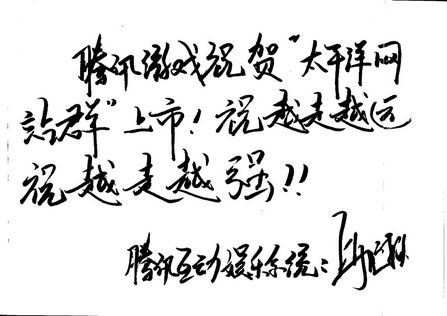 腾讯游戏祝贺"太平洋网
站群"上市！祝越走越远
祝越走越强！！
腾讯互动娱乐系统：